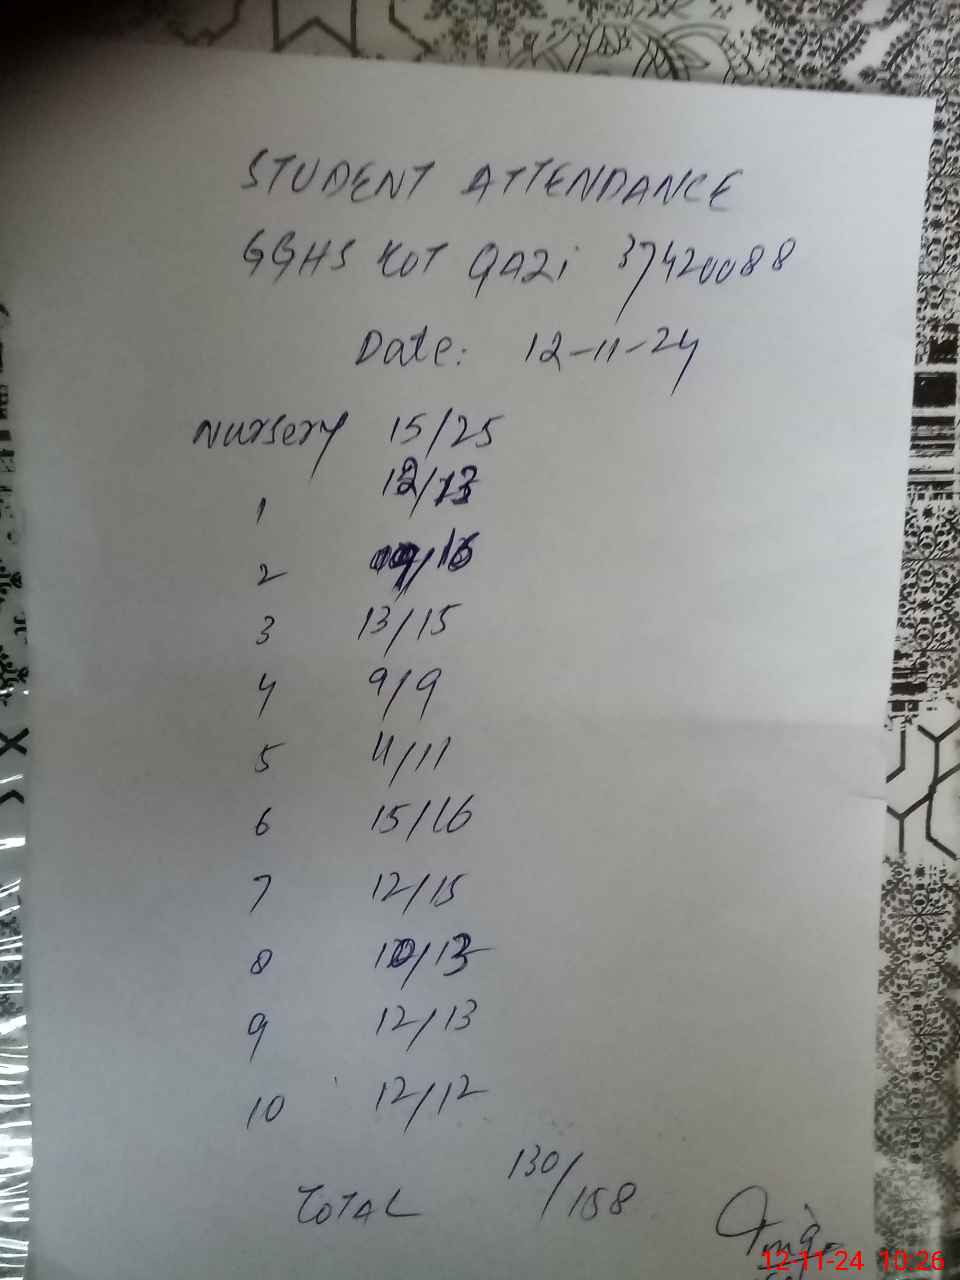 STUDENT ATTENDANCE
GGHS KOT QAZi 37420088
Date: 12-11-24
Nursery 15/25
1 12/13
2 /16
3 13/15
4 9/9
5 11/11
6 15/16
7 12/15
8 10/13
9 12/13
10 12/12
TOTAL 130/158
12-11-24 10:26